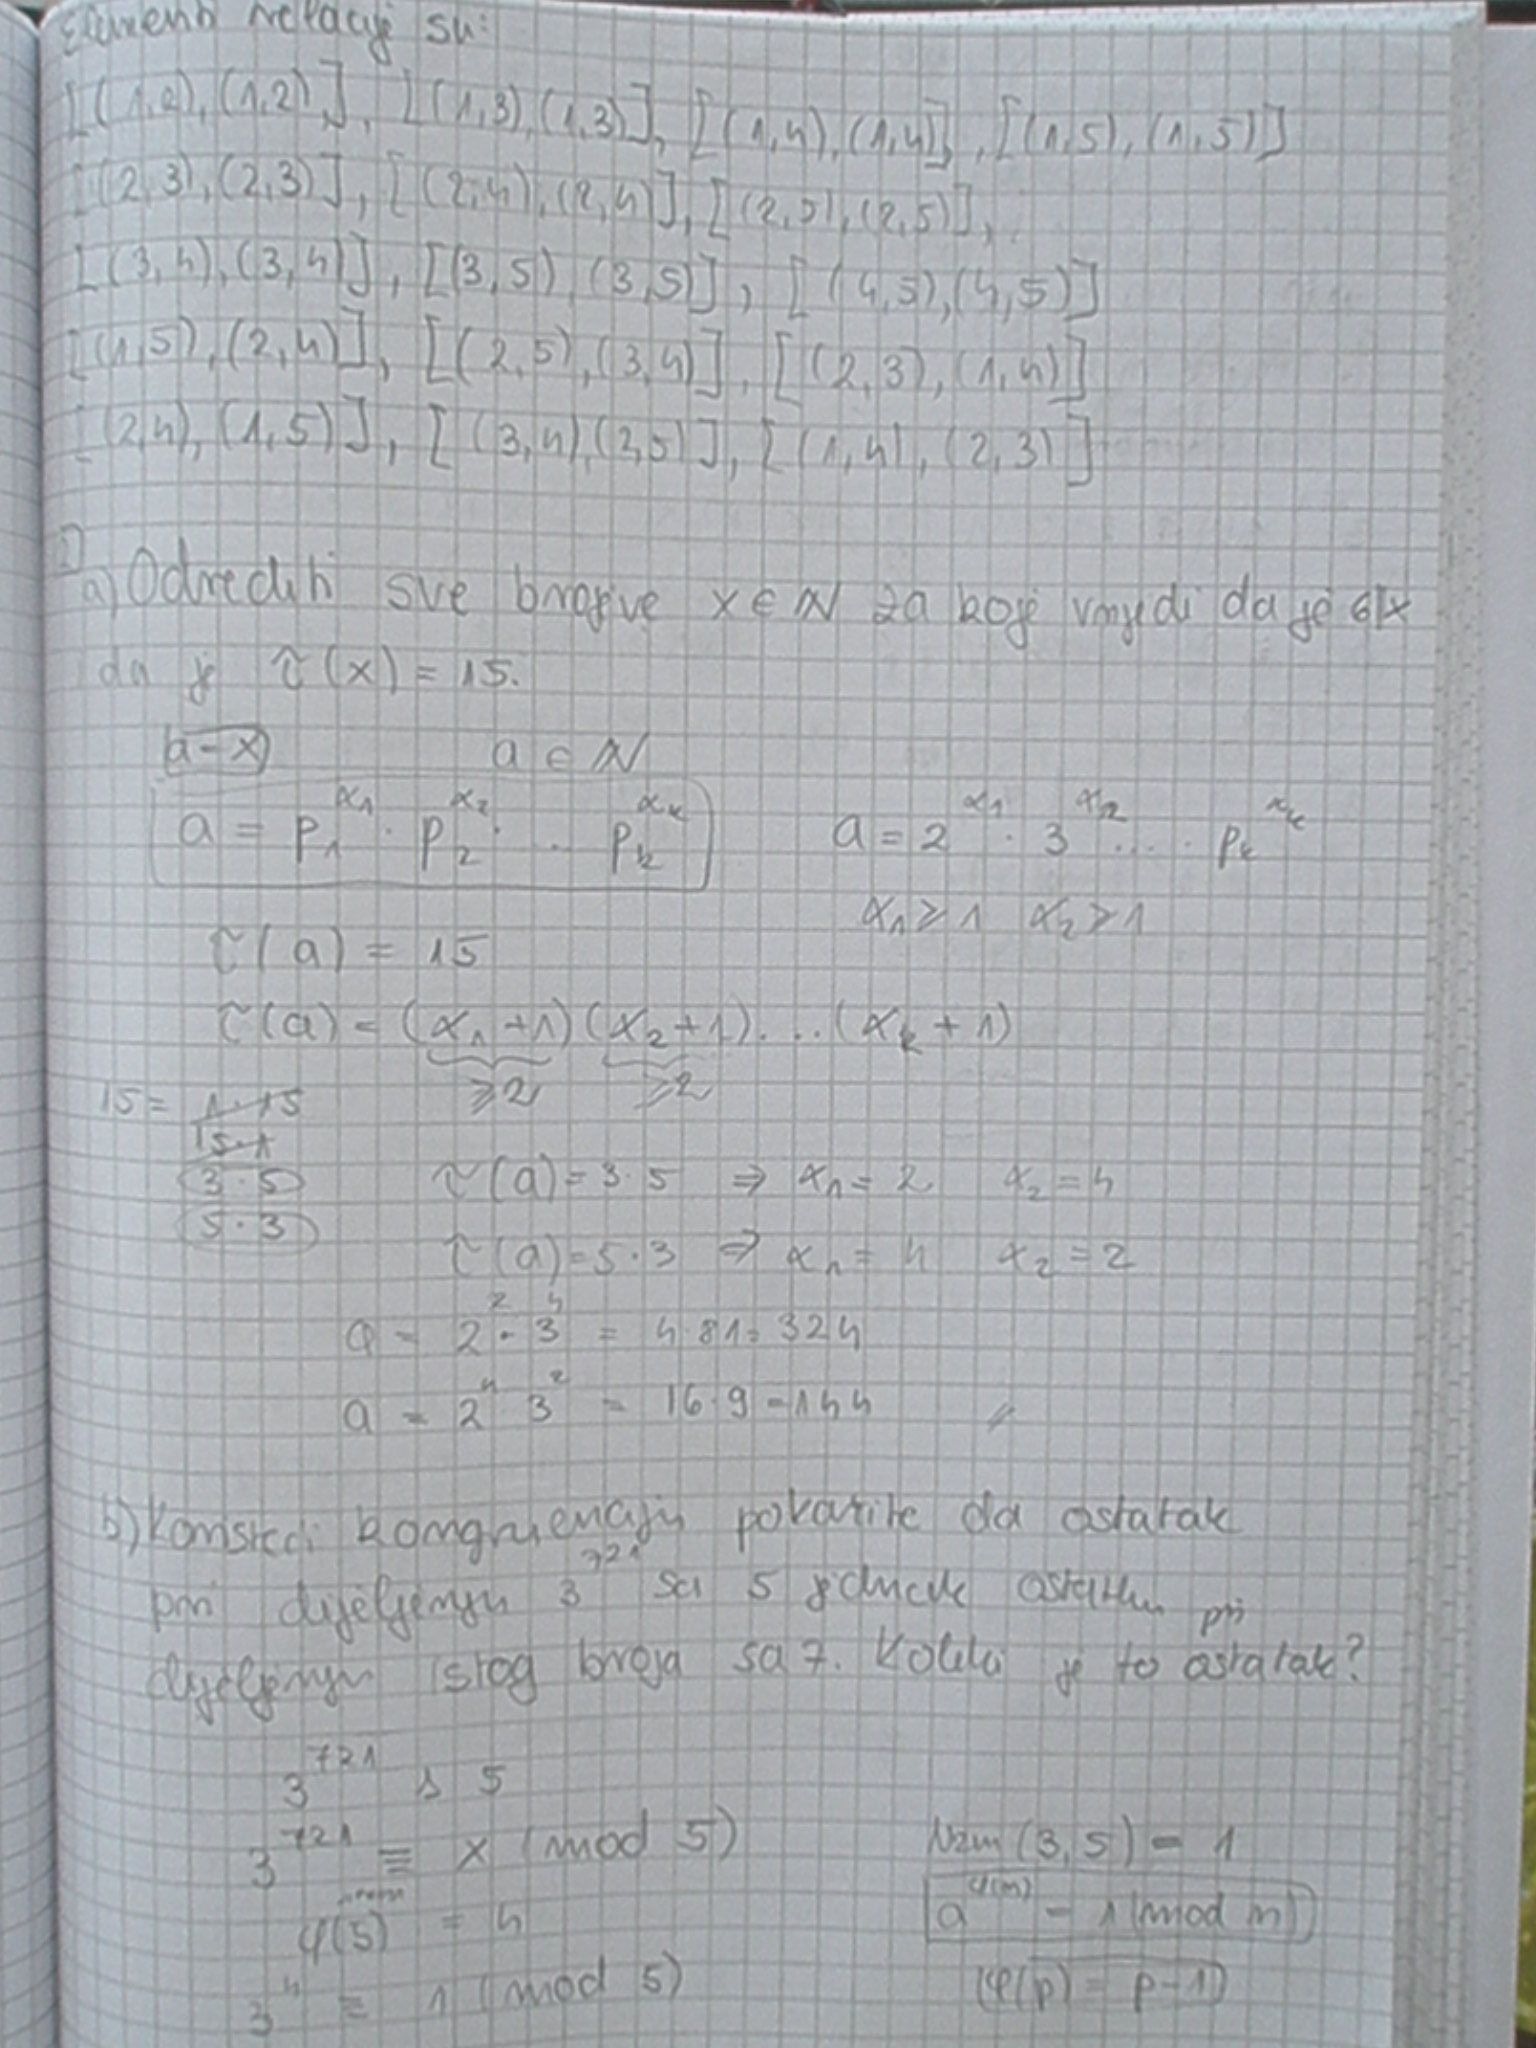 Elementi relacije su:
[(1,2),(1,2)], [(1,3),(1,3)], [(1,4),(1,4)], [(1,5),(1,5)]
[(2,3),(2,3)], [(2,4),(2,4)], [(2,5),(2,5)],
[(3,4),(3,4)], [(3,5),(3,5)], [(4,5),(4,5)]
[(1,5),(2,4)], [(2,5),(3,4)], [(2,3),(1,4)]
[(2,4),(1,5)], [(3,4),(2,5)], [(1,4),(2,3)]
a) Odrediti sve brojeve x ∈ N za koje vrijedi da je 6|x
da je τ(x) = 15.
a = x a ∈ N
a = p₁^α₁ · p₂^α₂ · . . p_k^α_k a = 2^α₁ · 3^α₂ . . . . · p_k^α_k
α₁ ≥ 1 α₂ ≥ 1
τ(a) = 15
τ(a) = (α₁+1)(α₂+1) . . . (α_k+1)
≥2 ≥2
15 = 1·15
15·1
3·5 τ(a) = 3·5 ⇒ α₁ = 2 α₂ = 4
5·3
τ(a) = 5·3 ⇒ α₁ = 4 α₂ = 2
a = 2² · 3⁴ = 4·81 = 324
a = 2⁴ 3² = 16·9 = 144 //
b) Koristeći kongruenciju pokažite da ostatak
pri dijeljenju 3^721 sa 5 jednak ostatku pri
dijeljenju istog broja sa 7. Koliki je to ostatak?
3^721 s 5
3^721 ≡ x (mod 5) Nzm(3,5) = 1
φ(5) = 4 a^φ(m) = 1 (mod m)
3⁴ ≡ 1 (mod 5) (φ(p) = p-1)